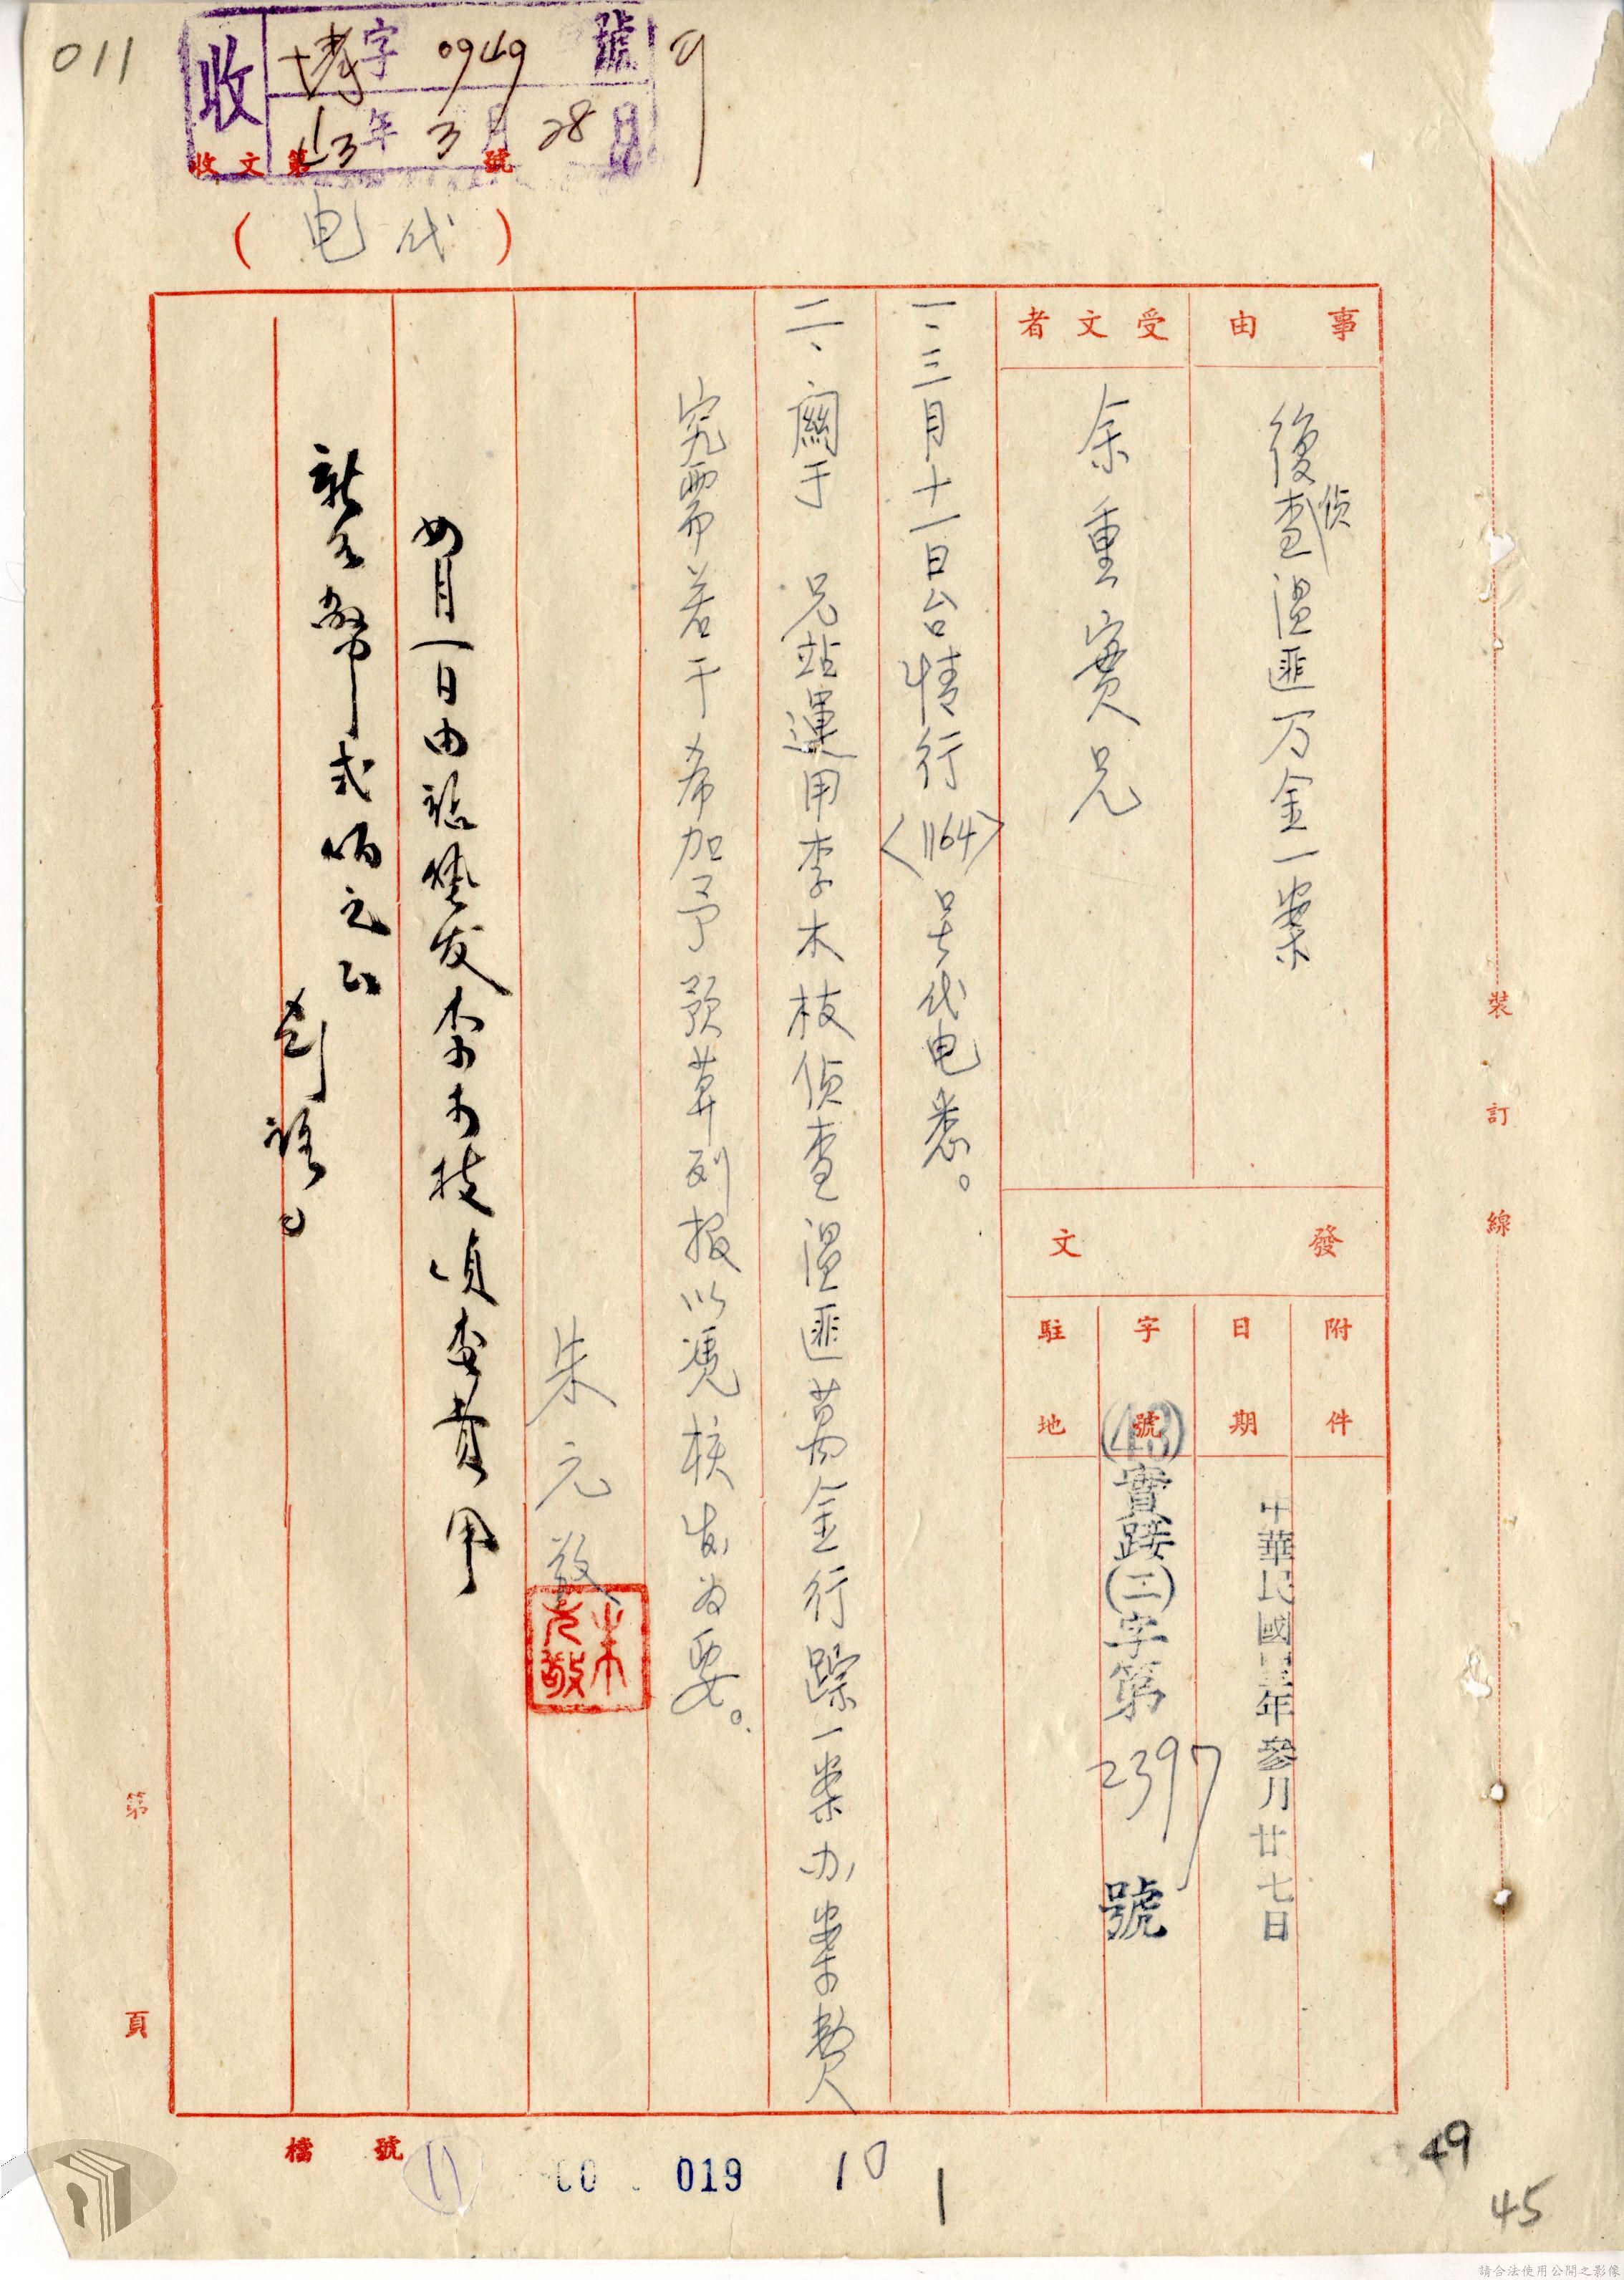 011
收 字 0949 號
43年3月28日
收文第 號
(代电)
事由
復偵查溫匪万金一案
受文者
余重實兄
發文
附件
日期
中華民國 年參月廿七日
字號
(43)實踐(二)字第2397號
駐地
一、三月十一日台情行〈1164〉号代电悉。
二、關于 兄站運用李木枝偵查溫匪萬金行踪一案办案費
究需若干希加予預算列报以凭核发为要。
朱元敬
朱元敬
四月一日由站墊发李木枝偵查費用
新台幣弍佰元正
裝訂線
第 頁
檔號
11
00 019
10
1
49
45
請合法使用公開之影像